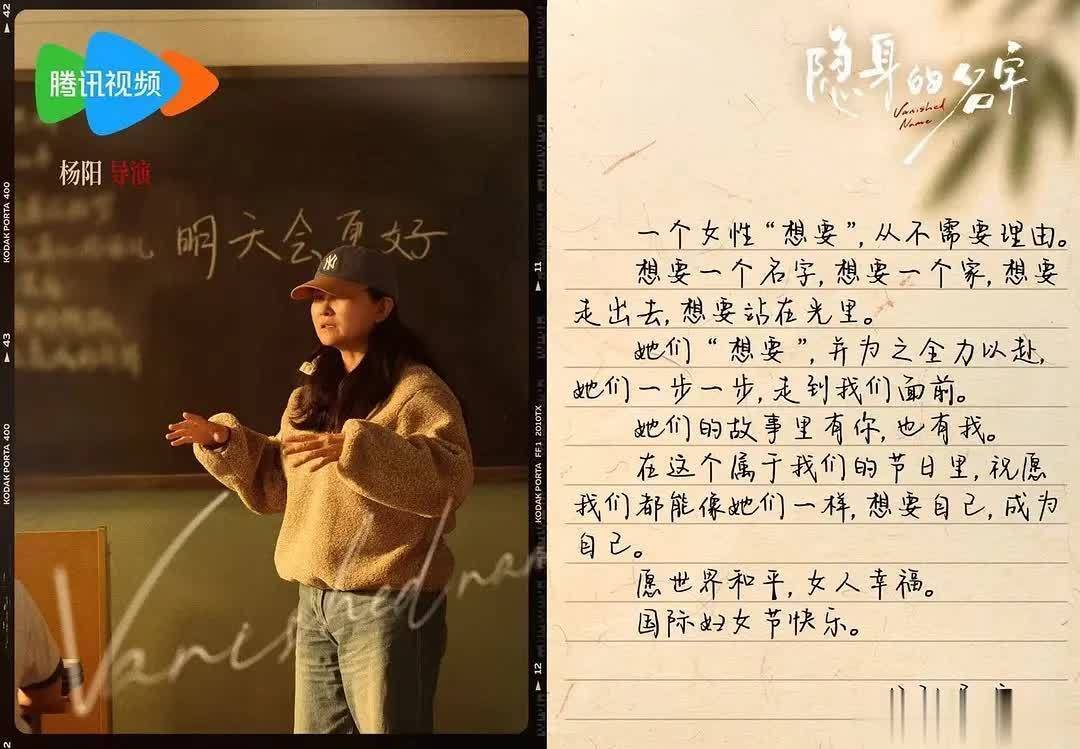 腾讯视频
杨阳 导演
明天会更好
Vanished name
42
KODAK PORTA 400
43
KODAK PORTA 400
11
KODAK PORTA 400 FF1 2010TX
12
隐身的名字
Vanished
Name
一个女性“想要”,从不需要理由。
想要一个名字,想要一个家,想要
走出去,想要站在光里。
她们“想要”,并为之全力以赴,
她们一步一步,走到我们面前。
她们的故事里有你,也有我。
在这个属于我们的节日里,祝愿
我们都能像她们一样,想要自己,成为
自己。
愿世界和平,女人幸福。
国际妇女节快乐。